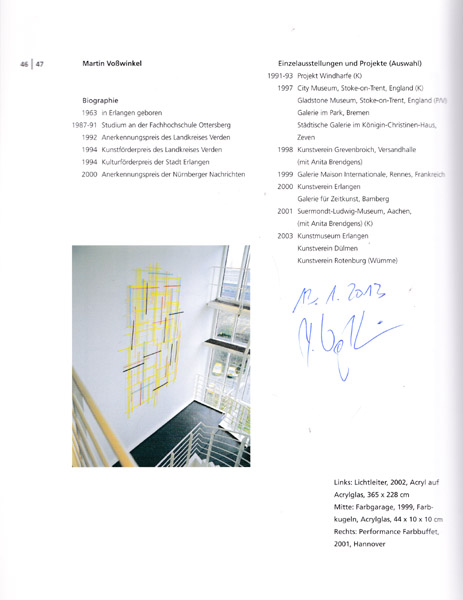 46 | 47
Martin Voßwinkel
Biographie
1963 in Erlangen geboren
1987-91 Studium an der Fachhochschule Ottersberg
1992 Anerkennungspreis des Landkreises Verden
1994 Kunstförderpreis des Landkreises Verden
1994 Kulturförderpreis der Stadt Erlangen
2000 Anerkennungspreis der Nürnberger Nachrichten
Einzelausstellungen und Projekte (Auswahl)
1991-93 Projekt Windharfe (K)
1997 City Museum, Stoke-on-Trent, England (K)
Gladstone Museum, Stoke-on-Trent, England (P/V)
Galerie im Park, Bremen
Städtische Galerie im Königin-Christinen-Haus,
Zeven
1998 Kunstverein Grevenbroich, Versandhalle
(mit Anita Brendgens)
1999 Galerie Maison Internationale, Rennes, Frankreich
2000 Kunstverein Erlangen
Galerie für Zeitkunst, Bamberg
2001 Suermondt-Ludwig-Museum, Aachen,
(mit Anita Brendgens) (K)
2003 Kunstmuseum Erlangen
Kunstverein Dülmen
Kunstverein Rotenburg (Wümme)
1. 2013
Links: Lichtleiter, 2002, Acryl auf
Acrylglas, 365 x 228 cm
Mitte: Farbgarage, 1999, Farb-
kugeln, Acrylglas, 44 x 10 x 10 cm
Rechts: Performance Farbbuffet,
2001, Hannover